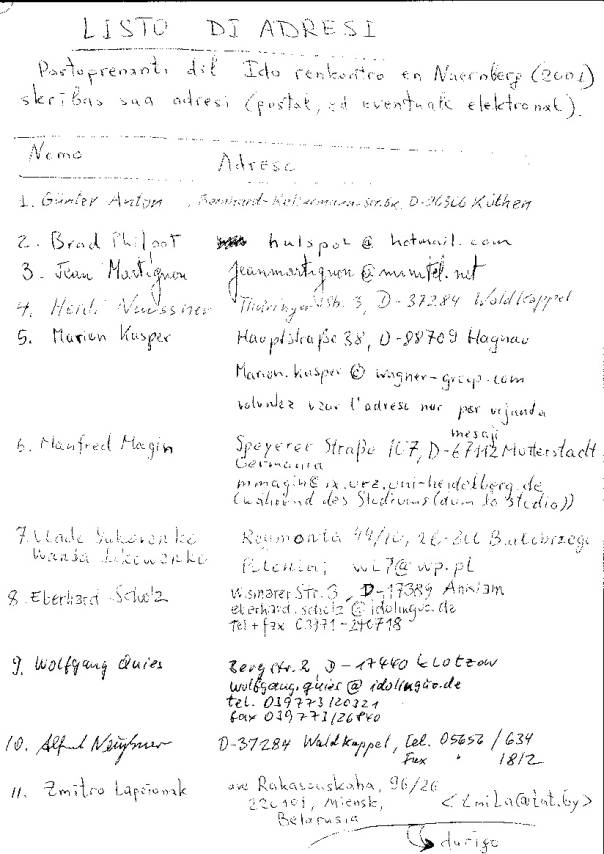 LISTO DI ADRESI
Partoprenanti dil Ido renkontro en Nuernberg (2001)
skribas sua adresi (postal, ed eventuale elektronal).
Nomo Adreso
1. Günter Anton, Bernhard-Kellermann- Köthen
2. Brad Philpot hulspot @ hotmail.com
3. Jean Martignon jeanmartignon @
4. Heidi Thüringer Str. 3, D-37284 Waldkappel
5. Marion Kasper Hauptstraße 38, D-88709 Hagnau
Marion.kasper @ wagner-group.com
voluntez uzar l'adreso nur por urjanta
mesaji
6. Manfred Magin Speyerer Straße 107, D-67112 Mutterstadt
Germania
mmagin@ix.urz.uni-heidelberg.de
(während des Studiums (dum la studio))
7. Vlade Reymonta
Wanda
Polonia; @wp.pl
8. Eberhard Scholz Wismarer Str. 3, D-17389 Anklam
eberhard.scholz @ idolinguo.de
Tel + fax 03971-240718
9. Wolfgang Quies Bergstr. 2 D-17440 Klotzow
wolfgang.quies @ idolinguo.de
tel. 039773/20321
fax 039773/26840
10. D-37284 Waldkappel, Tel. 05656 / 634
Fax " 1812
11. Zmitro Lapcionak 96/26
Miensk,
Belarusia
durigo